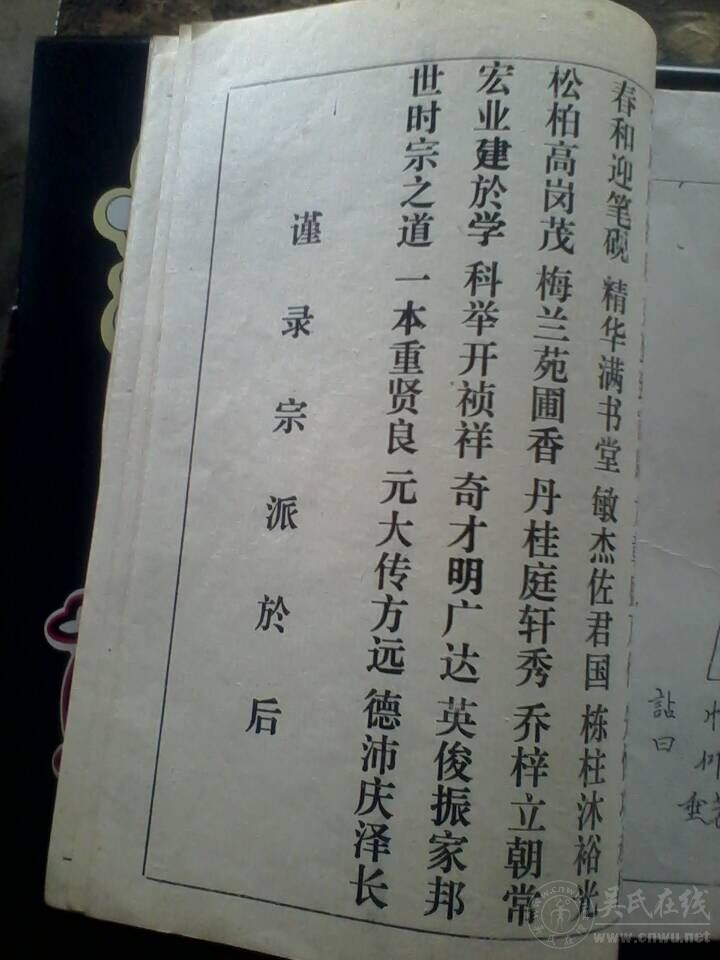 谨录宗派於后
世时宗之道 一本重贤良 元大传方远 德沛庆泽长
宏业建於学 科举开祯祥 奇才明广达 英俊振家邦
松柏高岗茂 梅兰苑圃香 丹桂庭轩秀 乔梓立朝常
春和迎笔砚 精华满书堂 敏杰佐君国 栋柱沐裕光
詀曰
垂
吴氏在线
www.cnwu.net